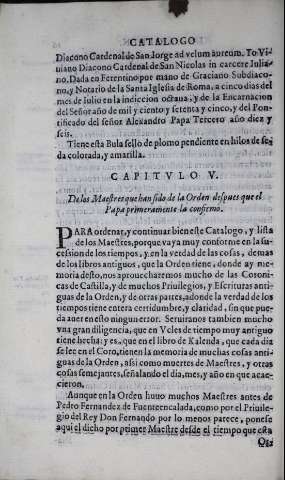 CATALOGO
Diacono Cardenal de San Jorge ad velum aureum. Yo Vi-
uiano Diacono Cardenal de San Nicolas in carcere Julia-
no. Dada en Ferentino por mano de Graciano Subdiaco-
no, y Notario de la Santa Iglesia de Roma, a cinco dias del
mes de Iulio en la indiccion octaua, y de la Encarnacion
del Señor año de mil y ciento y setenta y cinco, y del Pon-
tificado del señor Alexandro Papa Tercero año diez y
seis.
Tiene esta Bula sello de plomo pendiente en hilos de se-
da colorada, y amarilla.
CAPITVLO V.
De los Maestres que han sido de la Orden despues que el
Papa primeramente la confirmo.
PARA ordenar, y continuar bien este Catalogo, y lista
de los Maestres, porque vaya muy conforme en la su-
cession de los tiempos, y en la verdad de las cosas, demas
de los libros antiguos, que la Orden tiene, donde ay me-
moria desto, nos aprouecharemos mucho de las Coroni-
cas de Castilla, y de muchos Priuilegios, y Escrituras anti-
guas de la Orden, y de otras partes, adonde la verdad de los
tiempos tiene entera certidumbre, y claridad, sin que pue-
da auer en esto ninguno error. Seruiranos tambien mucho
vna gran diligencia, que en Vcles de tiempo muy antiguo
tiene hecha: y es, que en el libro de Kalenda, que cada dia
se lee en el Coro, tienen la memoria de muchas cosas anti-
guas de la Orden, assi como muertes de Maestres, y otras
cosas semejantes, señalando el dia, mes, y año en que acae-
cieron.
Aunque en la Orden huuo muchos Maestres antes de
Pedro Fernandez de Fuenteencalada, como por el Priuile-
gio del Rey Don Fernando por lo menos parece, ponese
aqui el dicho por primer Maestre desde el tiempo que esta